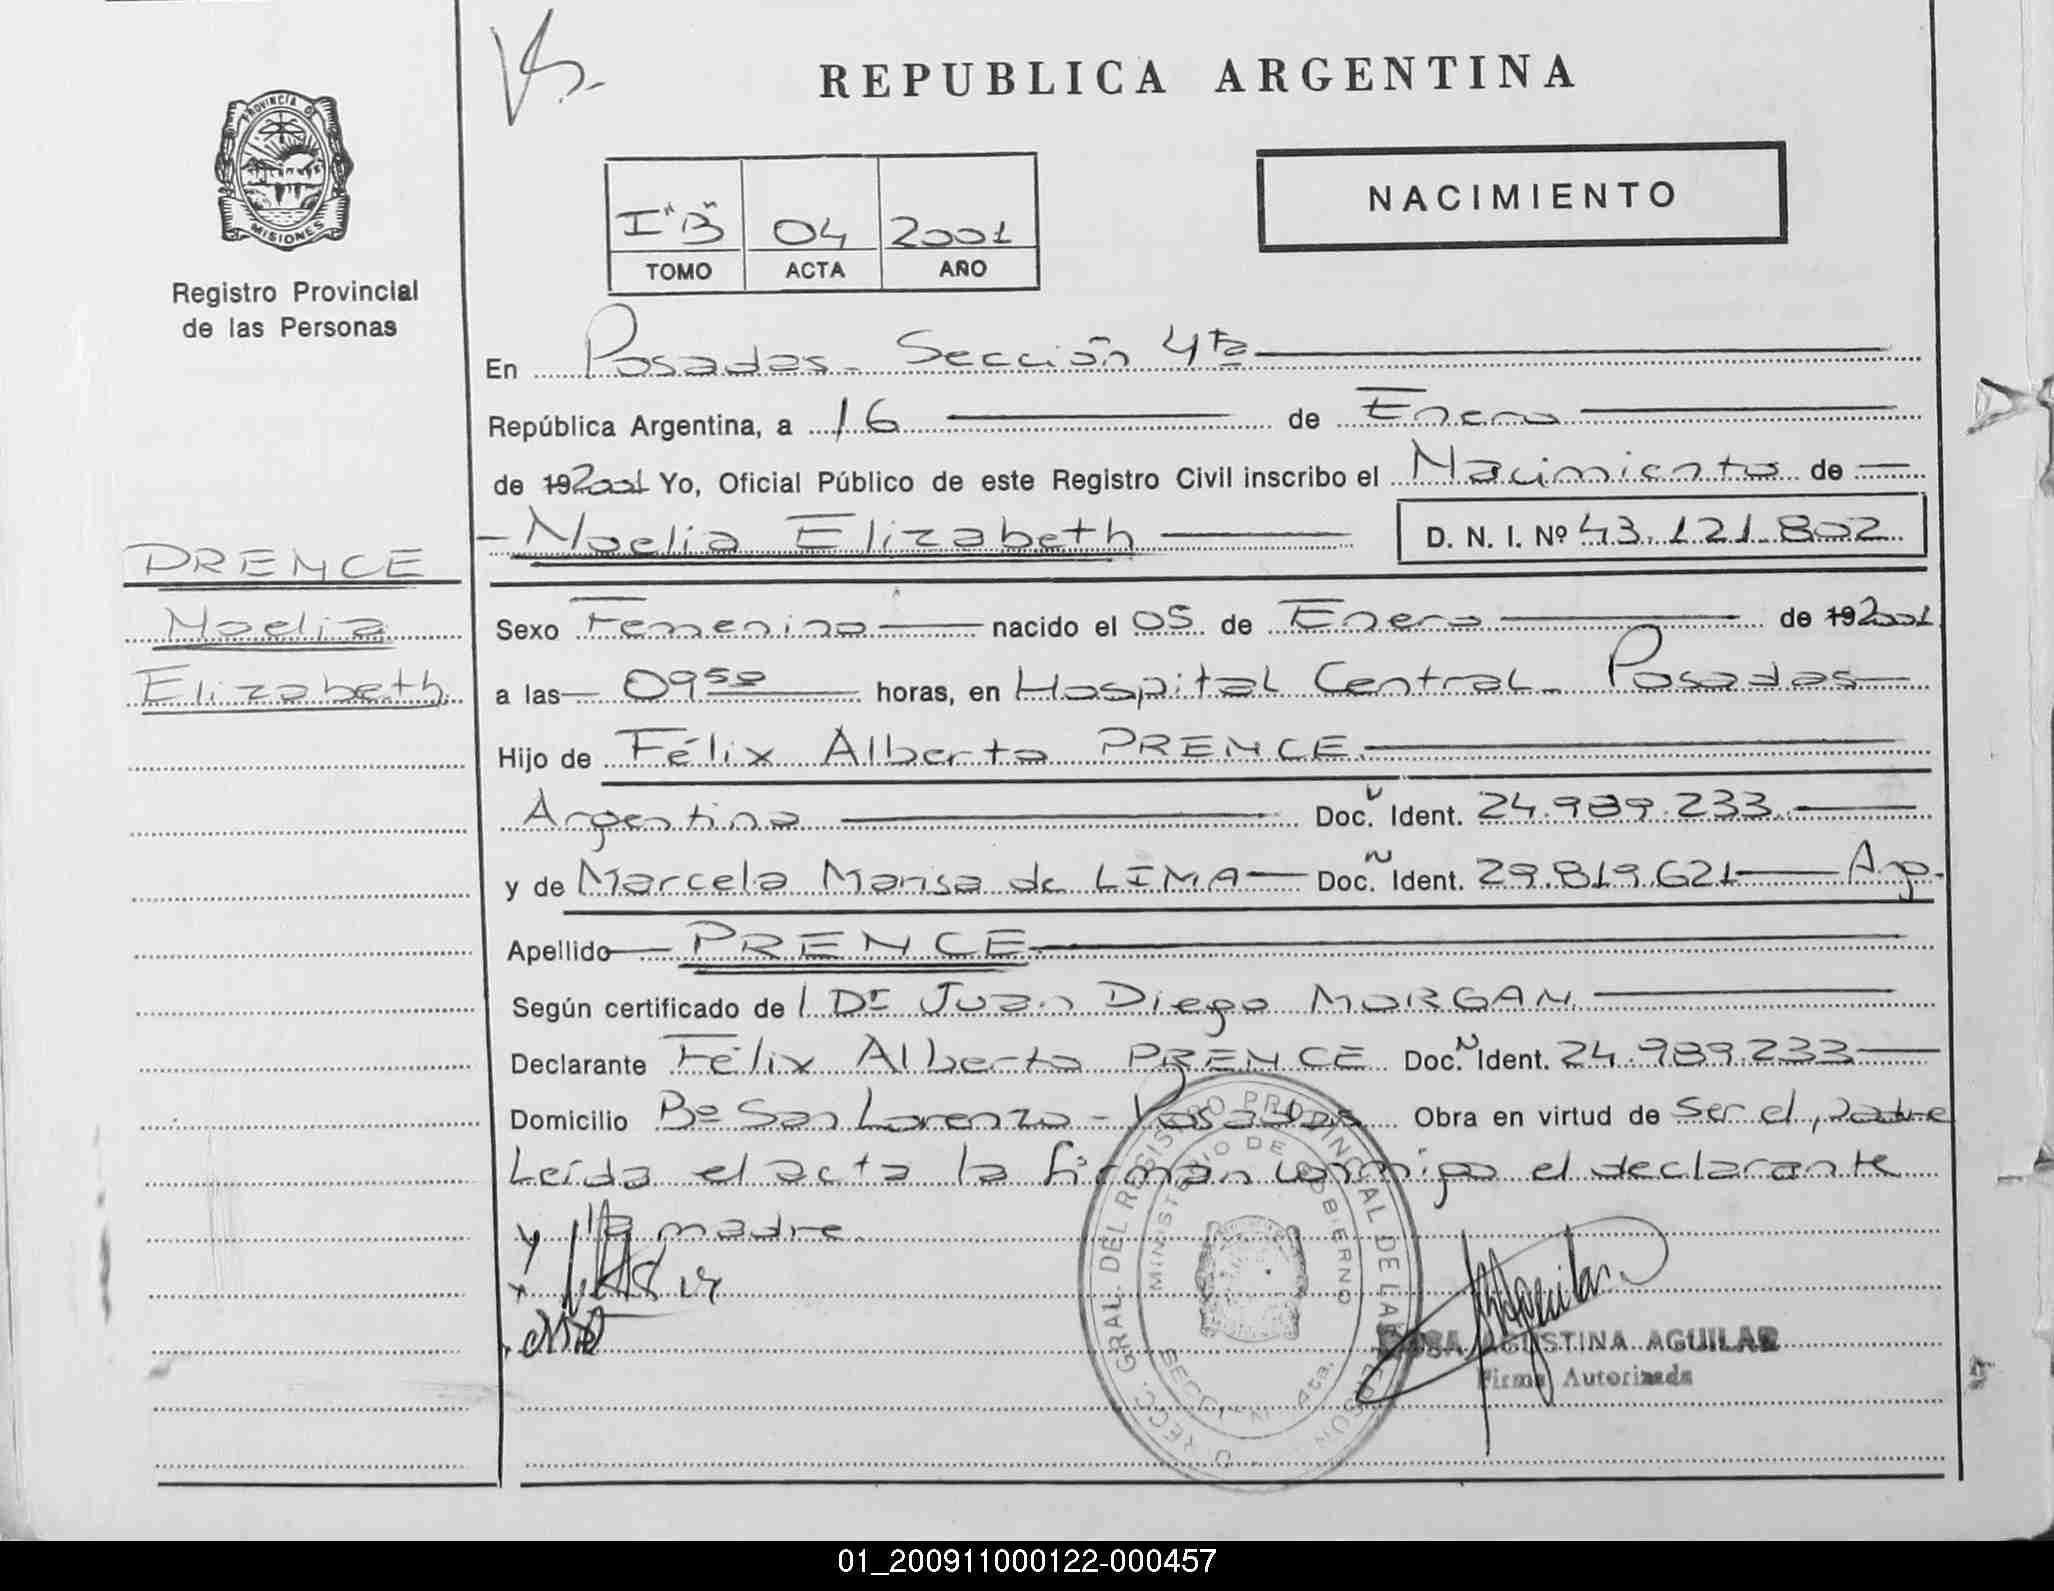 REPUBLICA ARGENTINA
PROVINCIA DE
MISIONES
Registro Provincial
de las Personas
NACIMIENTO
I "B" 04 2001
TOMO ACTA AÑO
En Posadas - Sección 4ta
República Argentina, a 16 de Enero
de 192001 Yo, Oficial Público de este Registro Civil inscribo el Nacimiento de
Noelia Elizabeth D. N. I. Nº 43.121.802
PRENCE
Noelia
Elizabeth
Sexo Femenino nacido el 05 de Enero de 192001
a las 09 50 horas, en Hospital Central - Posadas
Hijo de Félix Alberto PRENCE
Argentino Doc. Ident. 24.989.233
y de Marcela Marisa de LIMA Doc. Ident. 29.819.621 Arg.
Apellido PRENCE
Según certificado de Dr Juan Diego MORGAN
Declarante Félix Alberto PRENCE Doc. Ident. 24.989.233
Domicilio Bº San Lorenzo - Posadas Obra en virtud de Ser el padre
Leída el acta la firman conmigo el declarante
y la madre.
MINISTERIO DE GOBIERNO
AGUSTINA AGUILAR
Firma Autorizada
01_200911000122-000457